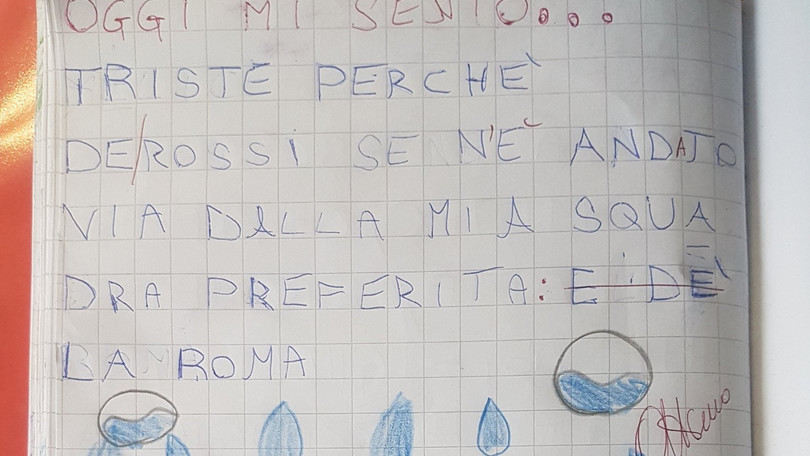 OGGI MI SENTO...
TRISTE PERCHE'
DE/ROSSI SE N'E ANDATO
VIA DALLA MIA SQUA
DRA PREFERITA: E I DE'
LA ROMA
Ottimo